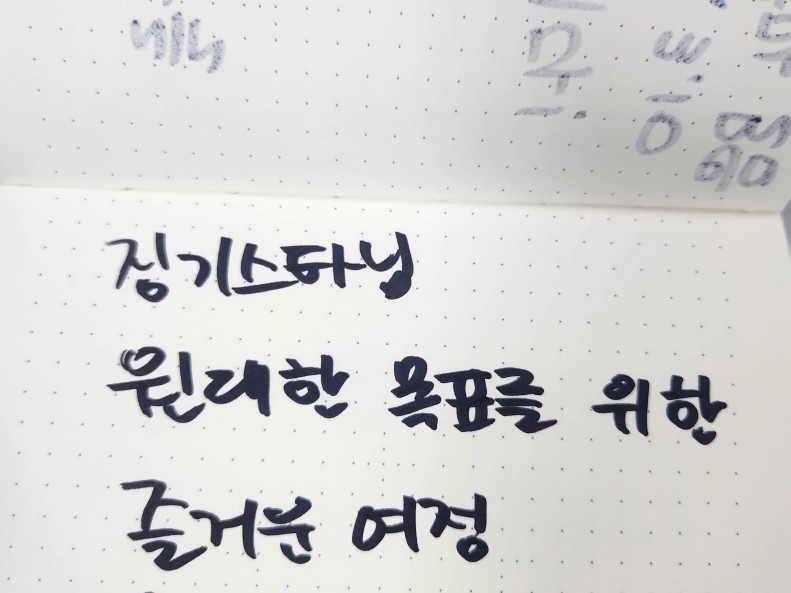 징기스타님
원대한 목표를 위한
즐거운 여정